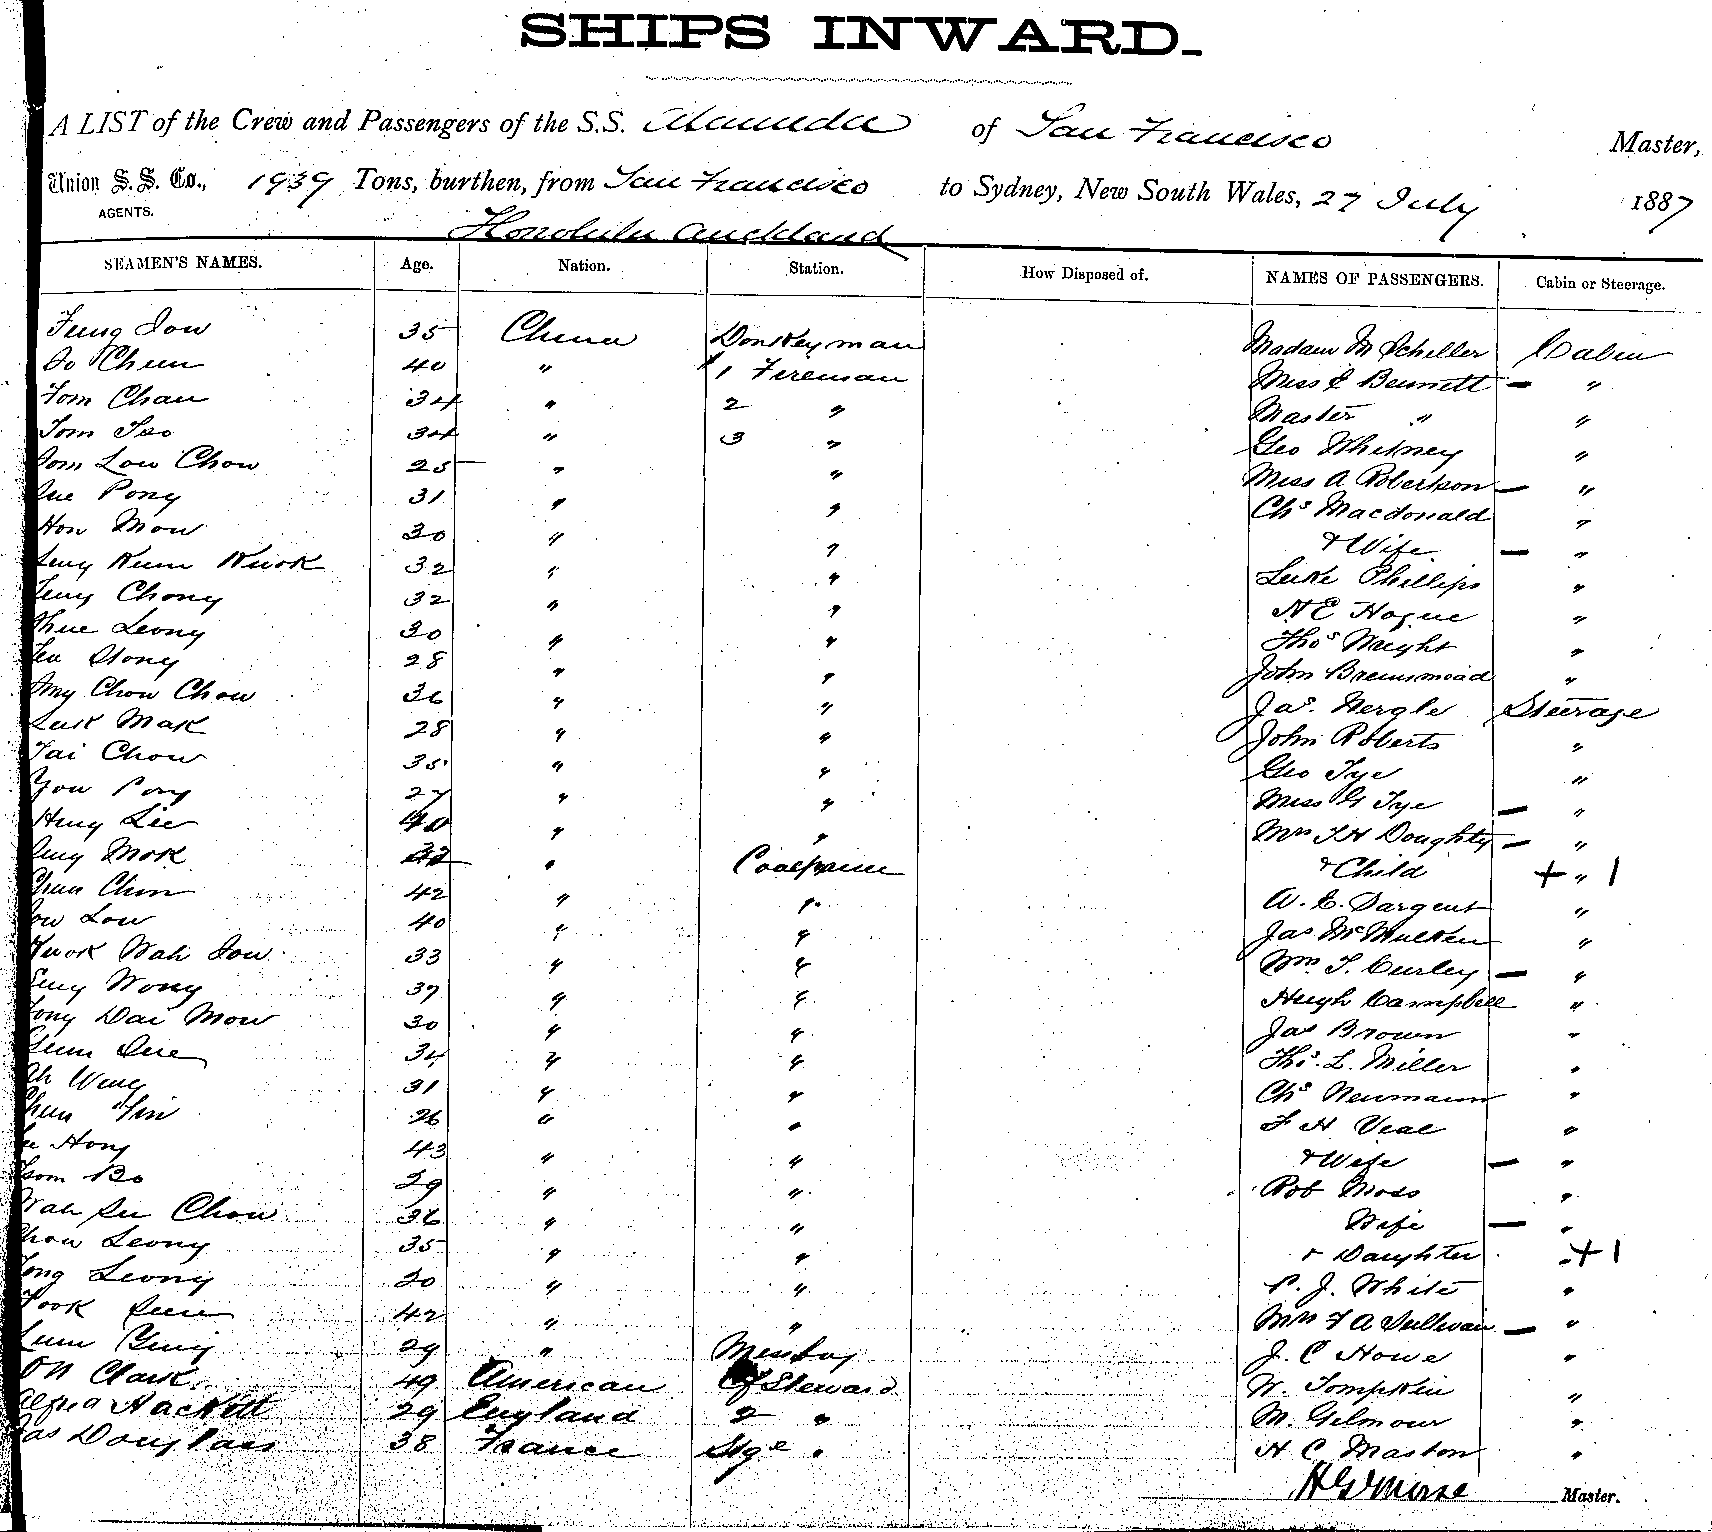 SHIPS INWARD.
A LIST of the Crew and Passengers of the S.S. Alameda of San Francisco Master,
Union S. S. Co., 1939 Tons, burthen, from San Francisco to Sydney, New South Wales, 27 July 1887
AGENTS.
Honolulu Auckland
SEAMEN'S NAMES. Age. Nation. Station. How Disposed of. NAMES OF PASSENGERS. Cabin or Steerage.
35 China Donkeyman Madam M Schiller Cabin
Chun 40 " 1 Fireman Miss E Bennett – "
Tom Chan 34 " 2 " Master " "
Tom 34 " 3 " Geo Whitney "
Low Chow 25 " " Miss A Robertson – "
Pong 31 " " Chs Macdonald "
Hon Mow 30 " " & Wife – "
Kum Kwok 32 " " Luke Phillips "
Chong 32 " " N E Hogue "
Leong 30 " " Thos Wright "
28 " " John "
Chow Chow 36 " " Jas. Nergle Steerage
Luk Mak 28 " " John Roberts "
Tai Chow 35 " " Geo Tye "
You Pong 27 " " Miss G Tye – "
Hung Lee 40 " " Mrs T H Doughty – "
Mok " & Child + " 1
Chun Chin 42 " " A. C. Sargent "
Low 40 " " Jas McMulken "
Kwok Wah 33 " " Mrs T. Curley – "
Wong 37 " " Hugh Campbell "
Dai Mow 30 " " Jas Brown "
34 " " Thos. L. Miller "
Ah Wing 31 " " Chs Neumann "
Chun Yin 26 " " F H Veal "
Hong 43 " " & Wife – "
Bo 29 " " Rob Moss "
Wah Chow 36 " " Wife – "
Chow Leong 35 " " & Daughter " + 1
Leong 20 " " P. J. White "
42 " " Mrs F A Sullivan – "
Lum 29 " J. C Howe "
Clark 49 American Cf Steward W. Tompkin "
Alfred Hackett 29 England 2 " M. Gilmour "
Jas Douglass 38 France Stge " H C Maston "
H G Morse Master.